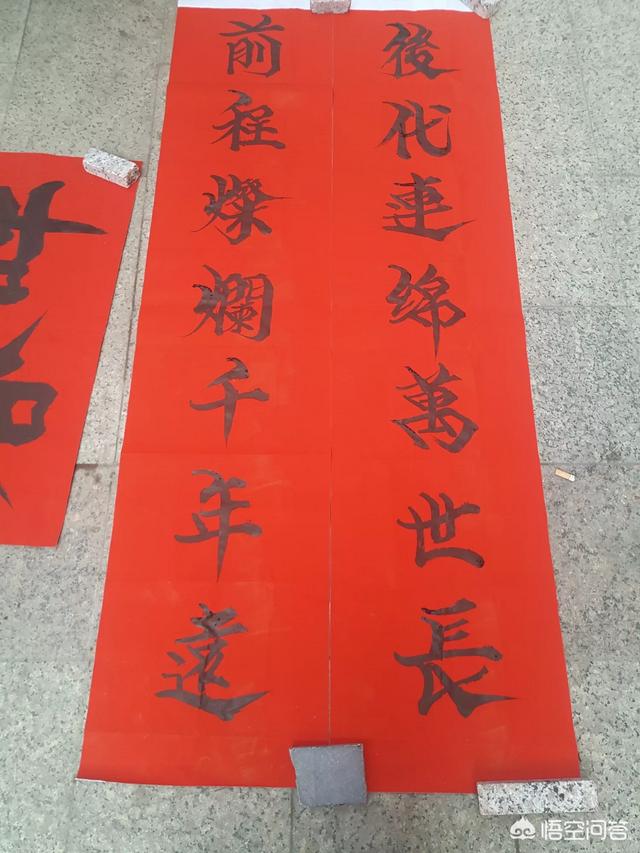 前程燦爛千年遠
後代連绵萬世長
悟空问答